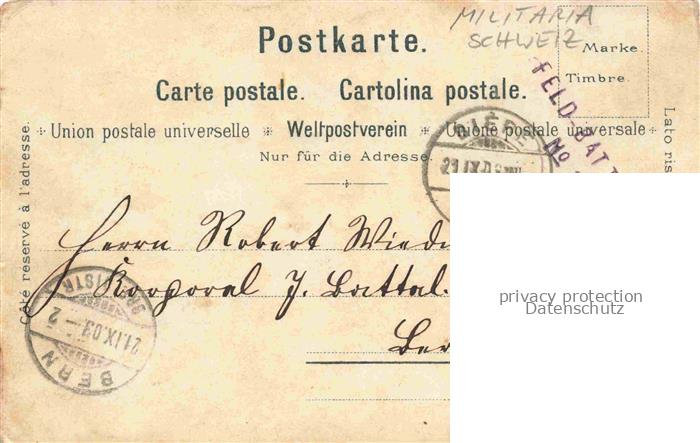 MILITARIA
SCHWEIZ
Postkarte.
Marke.
Timbre.
Carte postale. Cartolina postale.
FELD-BATT
No
Union postale universelle * Weltpostverein * Unione postale universale
Nur für die Adresse.
Côté réservé à l'adresse.
Lato ris
21.IX.0
Herrn Robert Wied
Korporal J. Battal.
Ber
BERN
21.IX.03.-2
privacy protection
Datenschutz